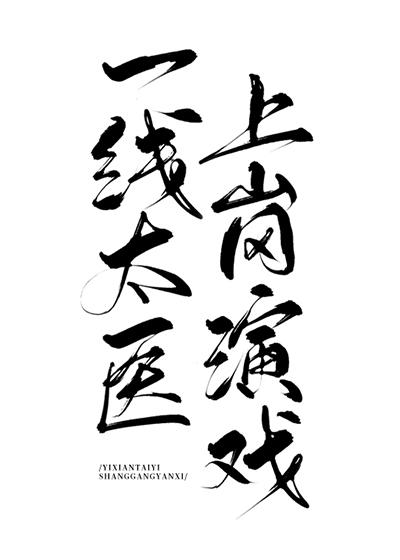 一线太医
上岗演戏
/YIXIANTAIYI
SHANGGANGYANXI/